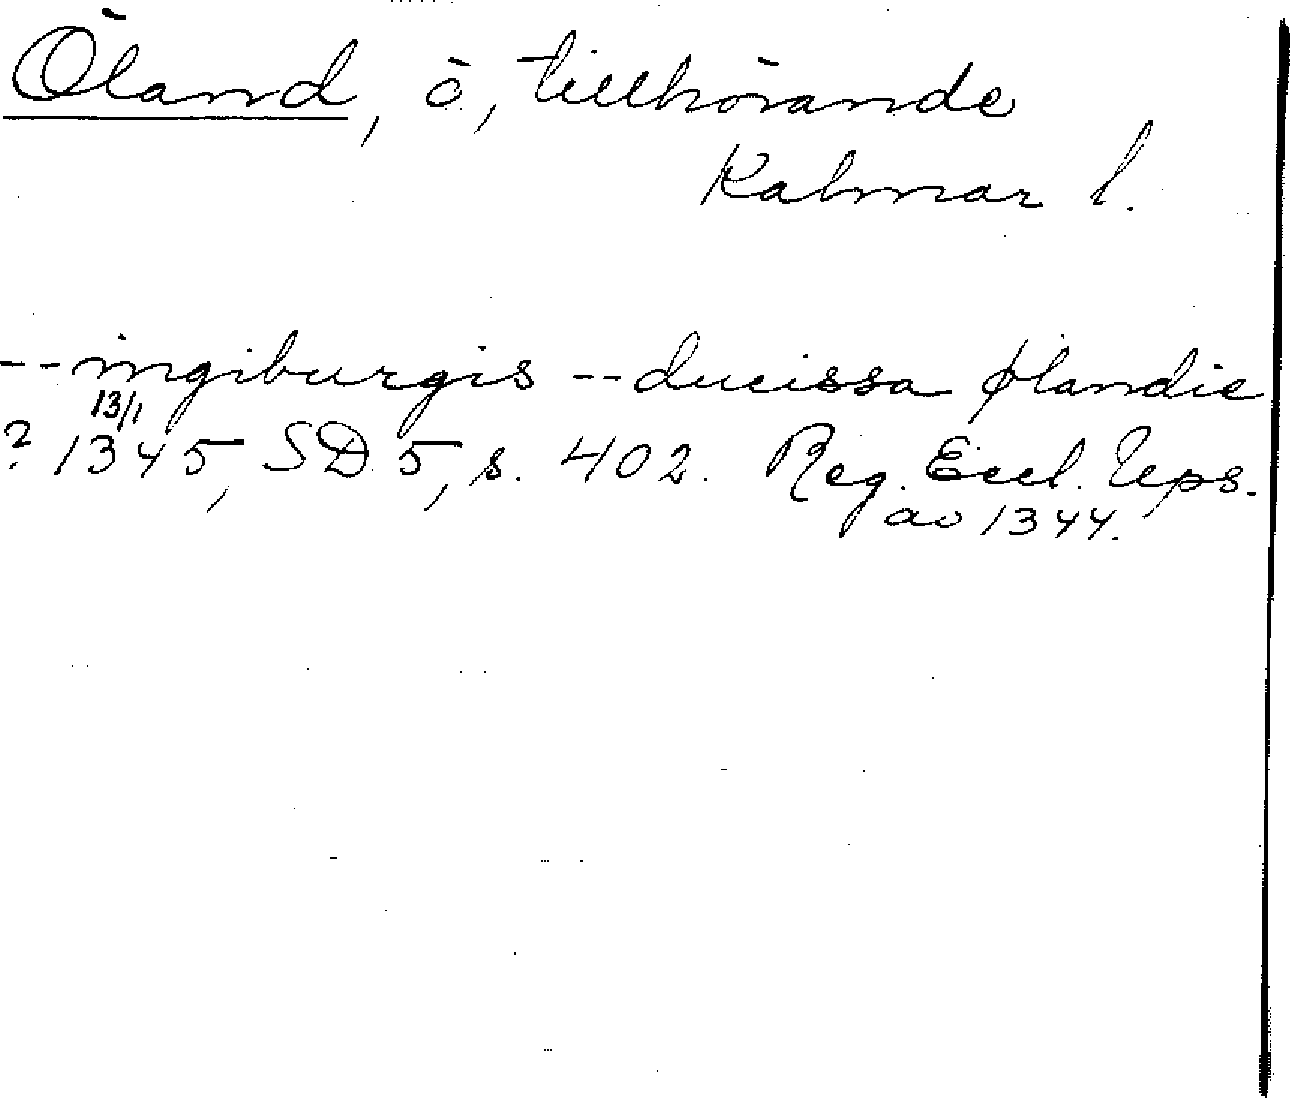 Öland, ö, tillhörande
Kalmar l.
-- ingiburgis -- ducissa ølandie
13/1
? 1345, SD 5, s. 402. Reg. Eccl. Ups.
av 1344.